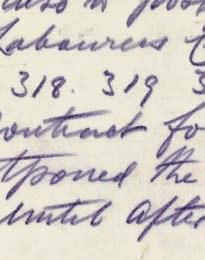 Labourers
318. 319 3
ontract fo
tponed the
until after